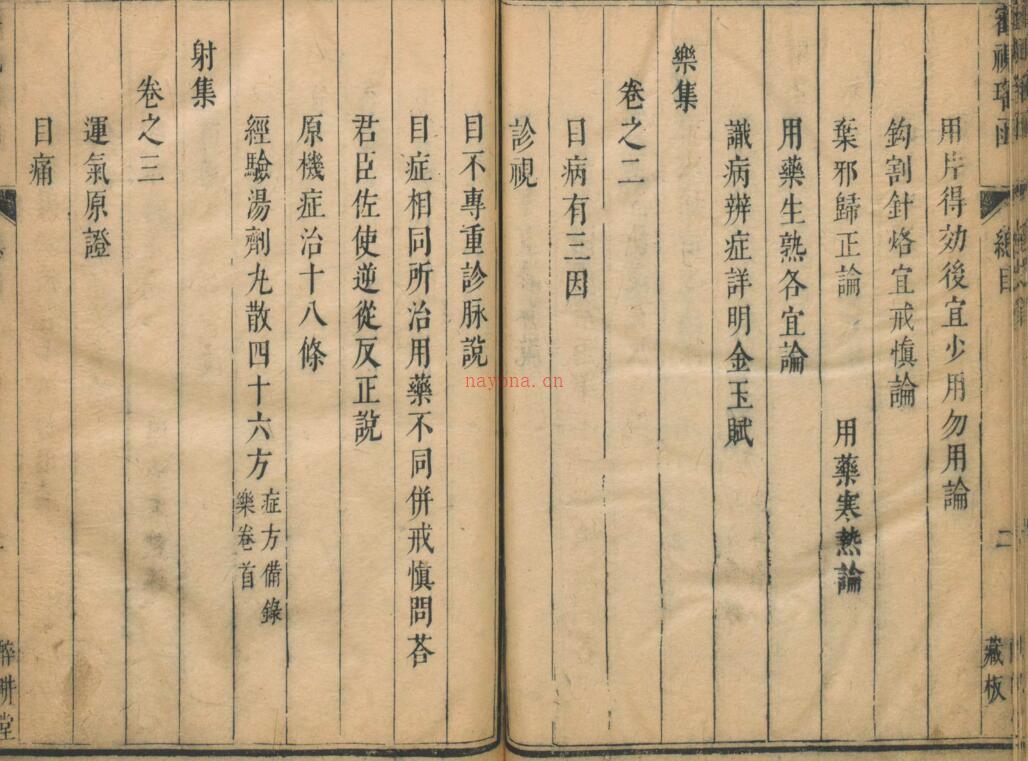 審視瑤函 總目 二 藏板
用片得効後宜少用勿用論
鈎割針烙宜戒慎論
棄邪歸正論 用藥寒𤍠論
用藥生熟各宜論
識病辨症詳明金玉賦
樂集
卷之二
目病有三因
診視
目不專重診脉說
目症相同所治用藥不同併戒慎問荅
君臣佐使逆從反正說
原機症治十八條
經驗湯劑丸散四十六方 症方備錄
樂卷首
射集
卷之三
運氣原證
目痛
醉耕堂
nayona.cn